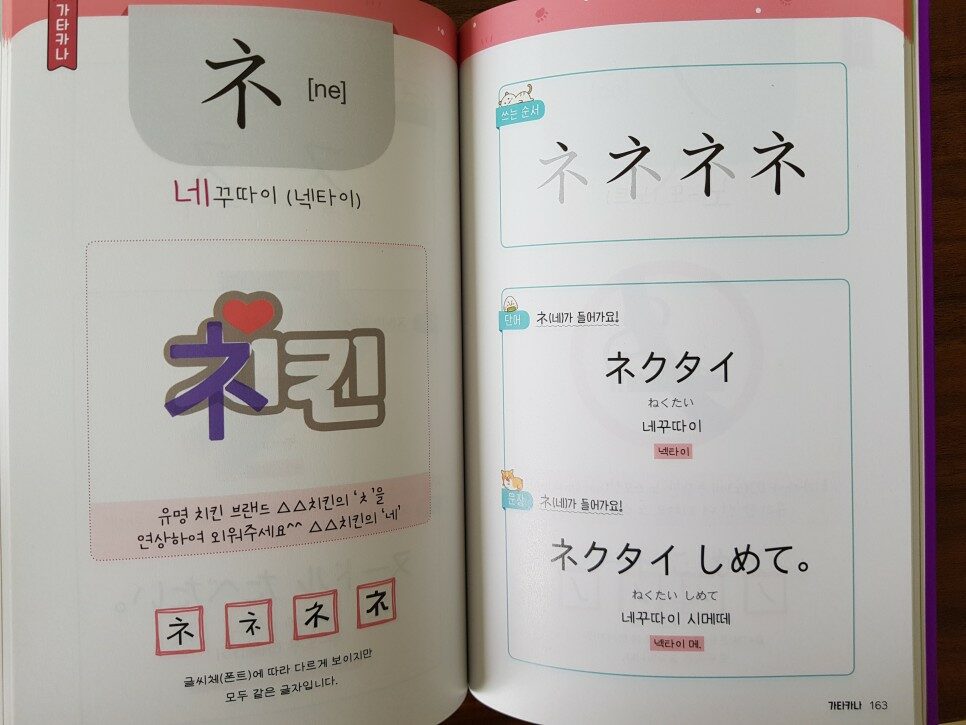 가타카나
ネ [ne]
네꾸따이 (넥타이)
치킨
유명 치킨 브랜드 △△치킨의 ‘ㅊ’을
연상하여 외워주세요^^ △△치킨의 ‘네’
ネ ネ ネ ネ
글씨체(폰트)에 따라 다르게 보이지만
모두 같은 글자입니다.
쓰는 순서
ネ ネ ネ ネ
단어 ネ(네)가 들어가요!
ネクタイ
ねくたい
네꾸따이
넥타이
문장 ネ(네)가 들어가요!
ネクタイ しめて。
ねくたい しめて
네꾸따이 시메떼
넥타이 메.
가타카나 163